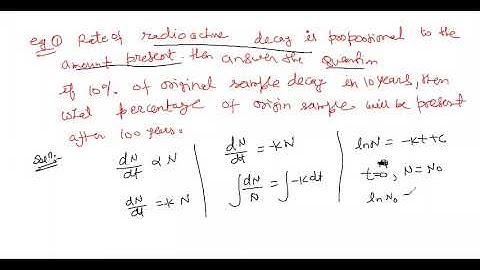 eg ① Rate of radioactive decay is proposional to the
amount present then answer the Question
if 10% of original sample decay in 10 years, then
what percentage of origin sample will be present
after 100 years.
Soln:-
dN/dt ∝ N
dN/dt = -k N
dN/dt = -kN
∫ dN/N = ∫ -k dt
ln N = -kt + c
t=0, N = N₀
ln N₀ =